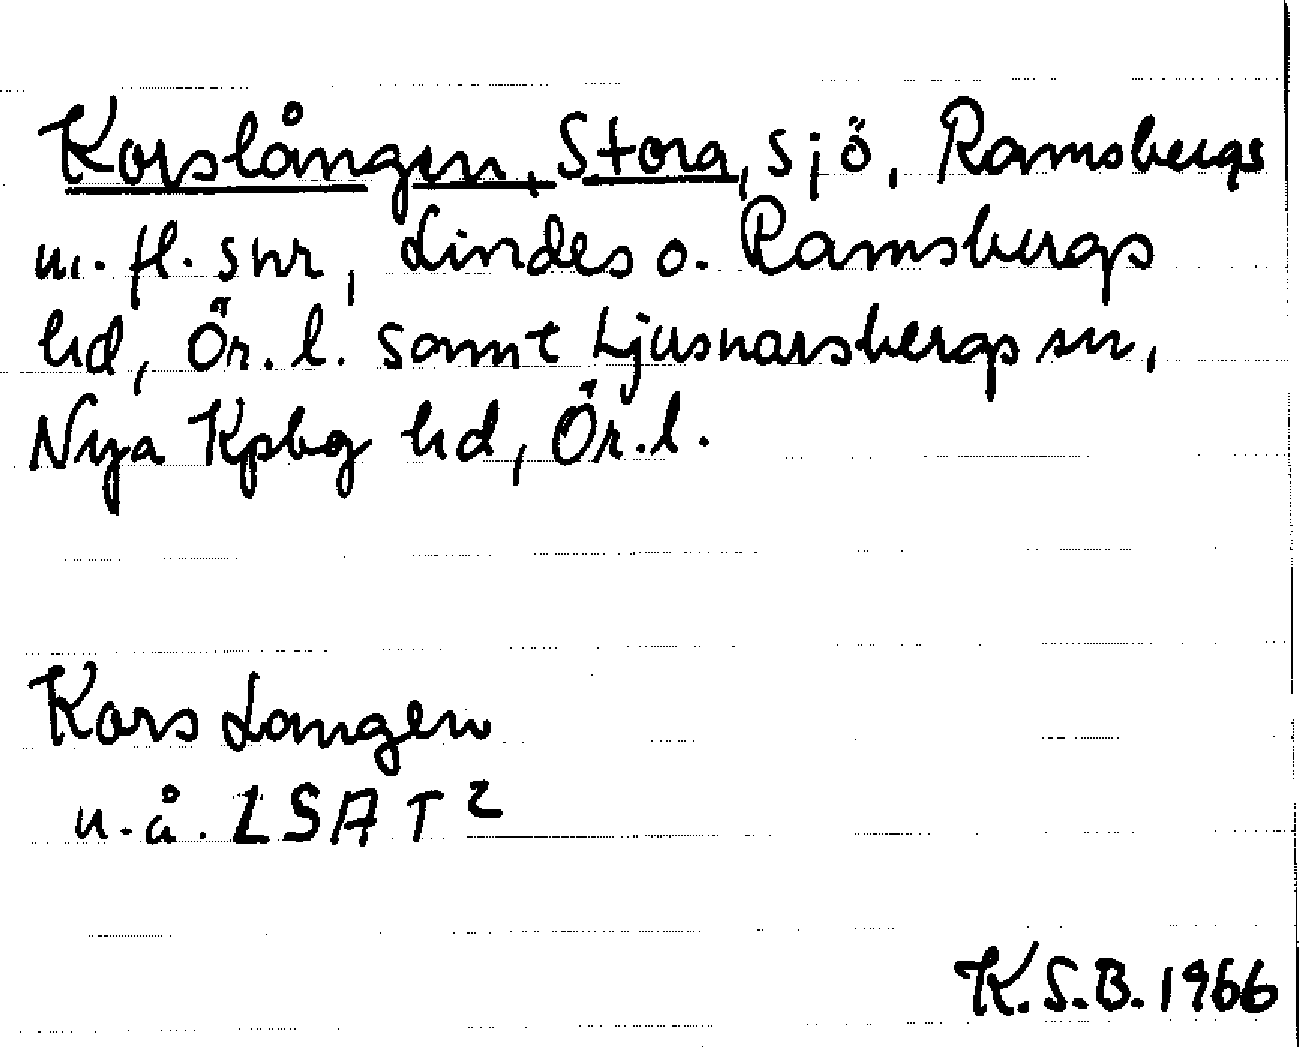 Korslången, Stora, sjö, Ramsbergs
m. fl. snr, Lindes o. Ramsbergs
hd, Ör. l. samt Ljusnarsbergs sn,
Nya Kpbg hd, Ör. l.
Kors Langen
u. å. LSA T2
K. S. B. 1966